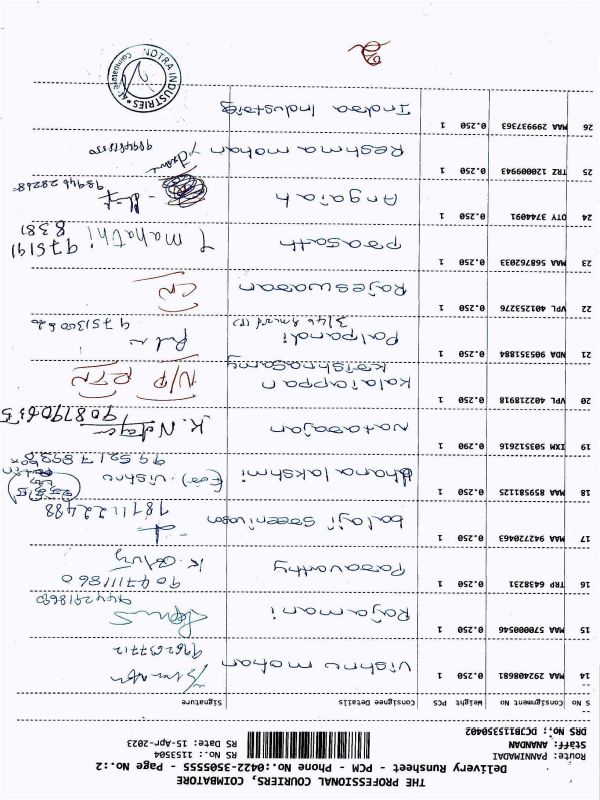 THE PROFESSIONAL COURIERS, COIMBATORE
Delivery Runsheet - PCM - Phone No.:0422-3505555 - Page No.:2
Route: PANNIMADAI
Staff: ANANDAN
DRS No.: DCJB1153504O2
RS No.: 1153504
RS Date: 15-Apr-2023
S No Consignment No Weight PCS Consignee Details Signature
14 MAA 292408681 0.250 1 Vishnu mohan
9962637712
15 MAA 570000546 0.250 1 Rajamani
9442918680
16 TRP 6438231 0.250 1 Paravathy
9047111860
17 MAA 942720463 0.250 1 balaji Sreenivasan
7871122488
18 MAA 859581125 0.250 1 Dhanalakshmi Vishnu
9952178938
19 IXM 503512616 0.290 1 Natarajan K.
9087906355
20 VPL 402218918 0.250 1 Kaliappan N/P RTN
Krishnasamy
21 NDA 905351884 0.250 1 Palpandi
22 VPL 401253276 0.250 1 Rajeswaran CN
23 MAA 568762033 0.250 1 Prasath Mahathi 975191
8381
24 OTY 3744091 0.250 1 Angaiah
9894628268
25 TRZ 120009943 0.250 1 Reshma mohan
26 MAA 299937363 0.250 1 Indra Industries
NDTRA INDUSTRIES
Coimbatore